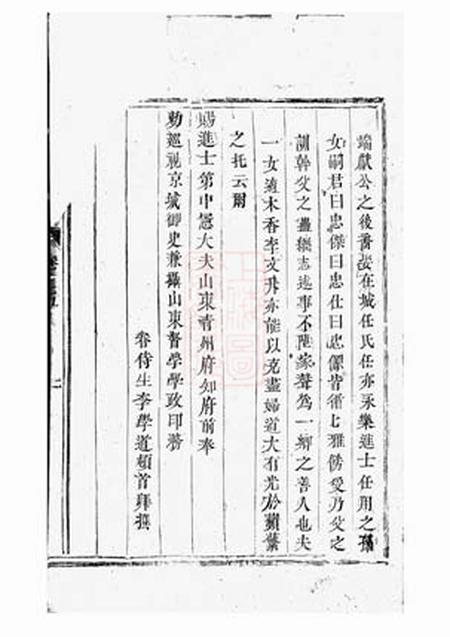 端獻公之後普娶在城任氏任亦永樂進士任用之孫
女嗣君曰忠傑曰忠仕曰忠傑皆循七雅傍受乃父之
訓幹父之蠱樂志述事不隕家聲為一鄉之善人也夫
一女適木香李文升亦能以克盡婦道大有光於蘋葉
之托云爾
賜進士第中憲大夫山東青州府知府前奉
勅巡視京城御史兼攝山東督學學政印務
眷侍生李學道頓首拜撰
二